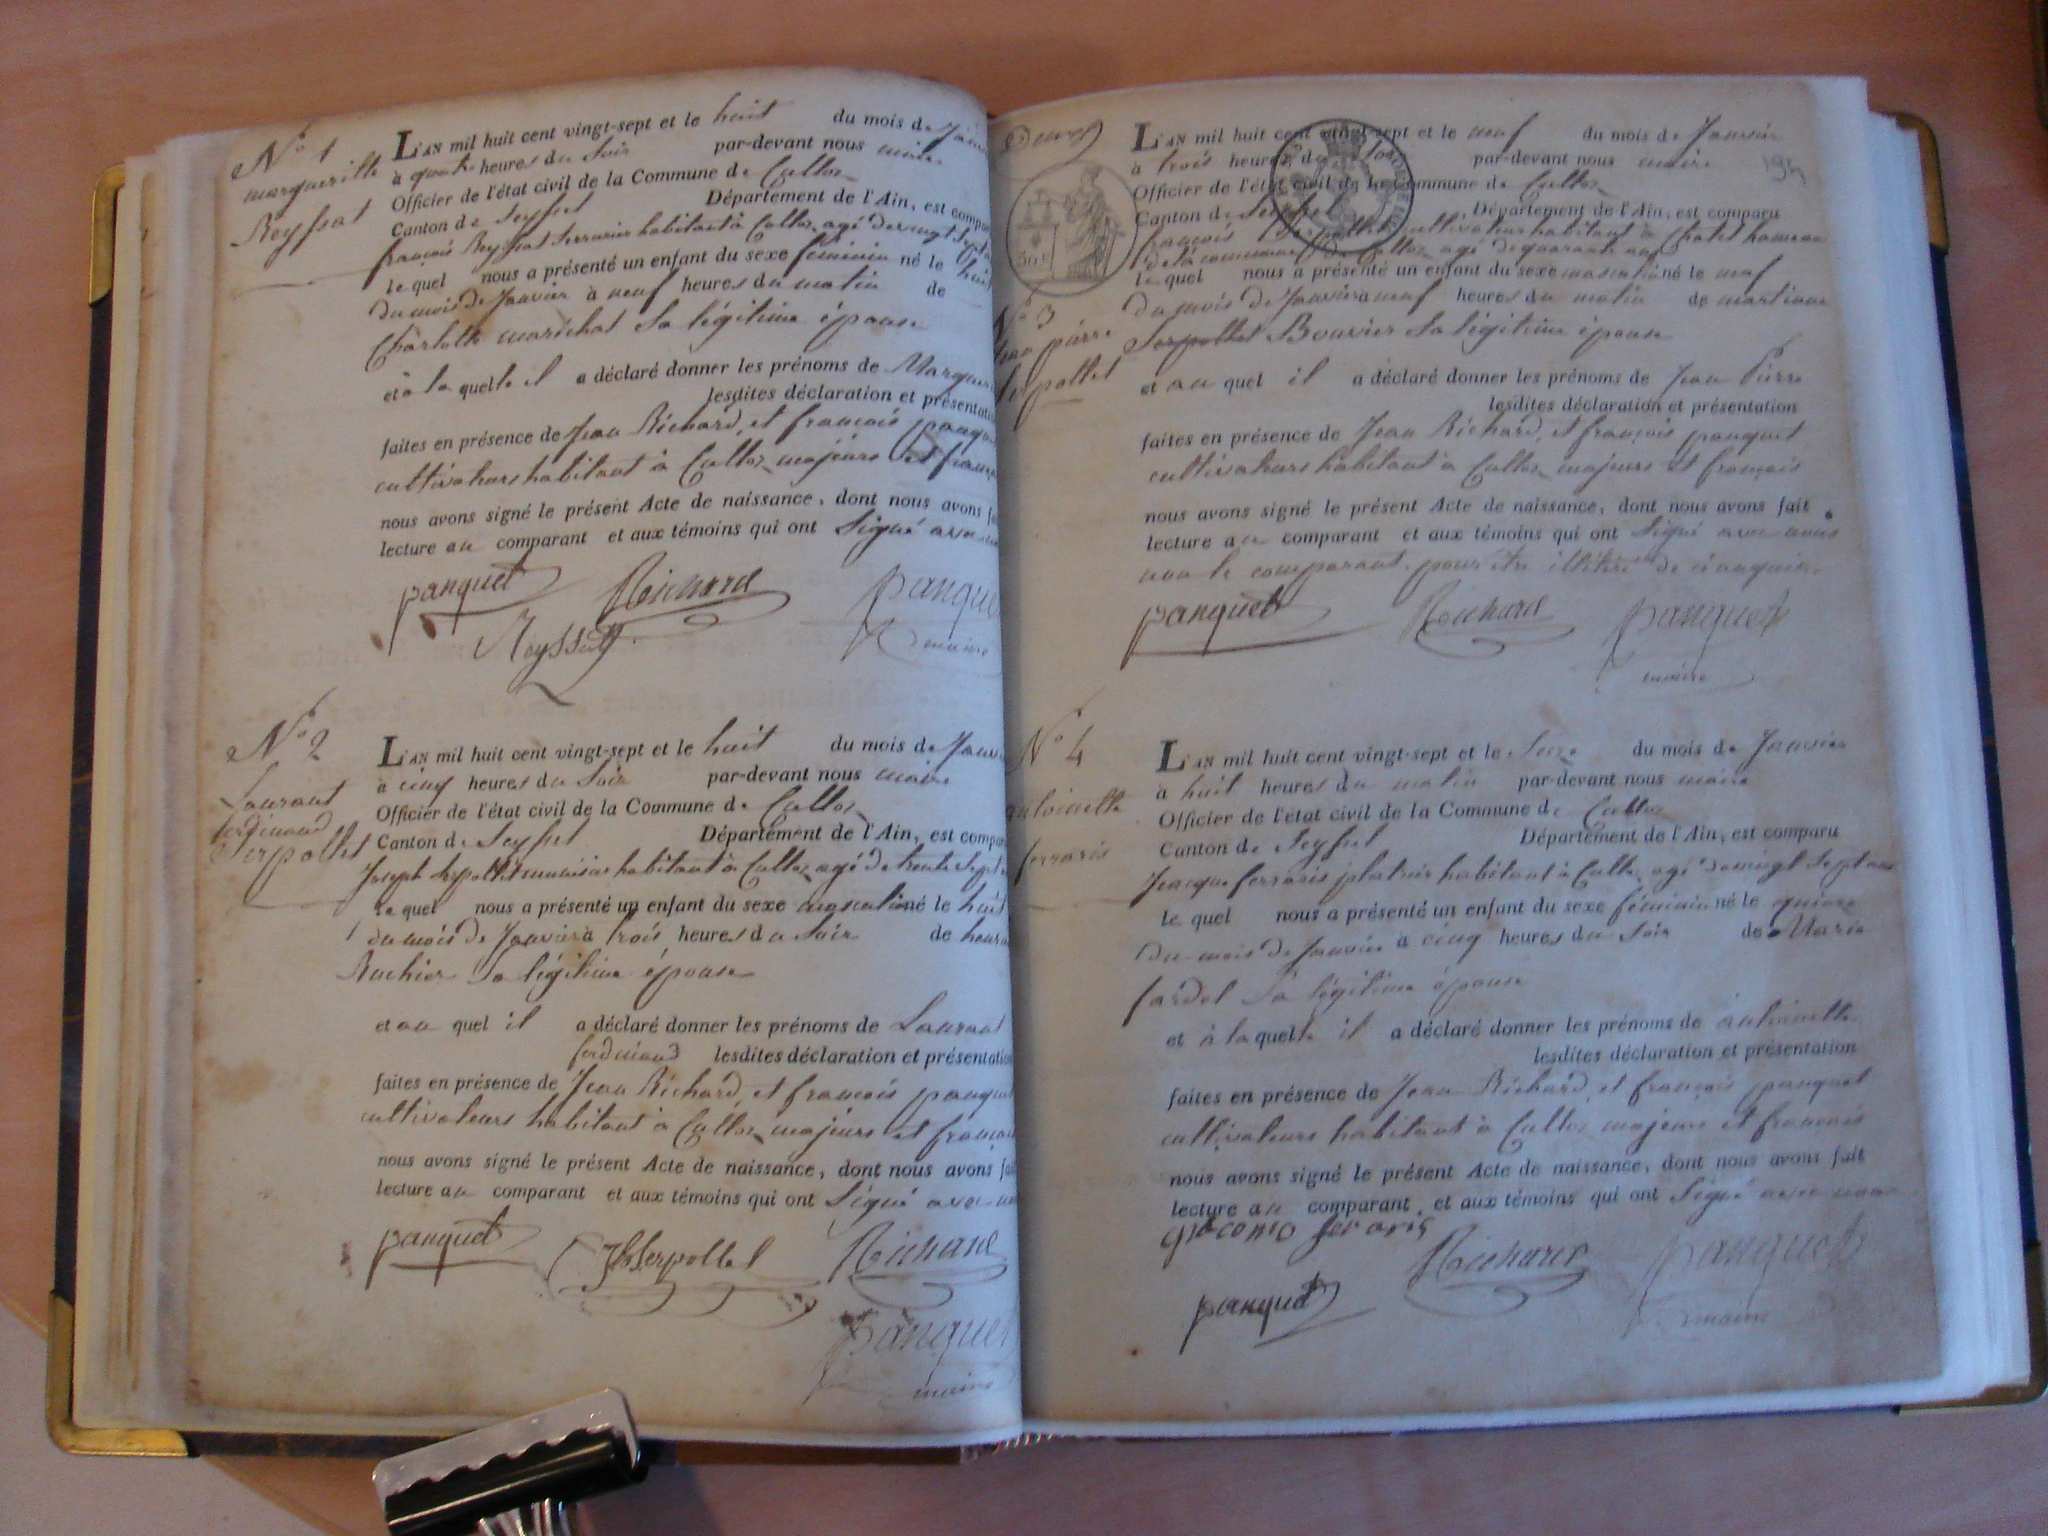 N° 1
marguerite
Reyssat
L'AN mil huit cent vingt-sept et le huit du mois de
à quatre heures du Soir par-devant nous maire
Officier de l'état civil de la Commune de Culloz
Canton de Seyssel Département de l'Ain, est comparu
françois Reyssat Serrurier habitant à Culloz agé de vingt Sept
le quel nous a présenté un enfant du sexe féminin né le huit
du mois de Janvier à neuf heures du matin de
Charlotte maréchal Sa légitime épouse
et à la quelle il a déclaré donner les prénoms de
lesdites déclaration et
faites en présence de Jean Richard, et françois
cultivateurs habitant à Culloz majeurs et
nous avons signé le présent Acte de naissance, dont nous avons
lecture au comparant et aux témoins qui ont Signé avec
panquet Richard
Reyssat maire
N° 2
Laurant
ferdinand
Serpollet
L'AN mil huit cent vingt-sept et le huit du mois de
à cinq heures du Soir par-devant nous maire
Officier de l'état civil de la Commune de Culloz
Canton de Seyssel Département de l'Ain, est
Joseph Serpollet habitant à Culloz agé de trente Sept
le quel nous a présenté un enfant du sexe masculin né le huit
du mois de Janvier à trois heures du Soir de
Ruchier Sa légitime épouse
et au quel il a déclaré donner les prénoms de Laurant
ferdinand lesdites déclaration et
faites en présence de Jean Richard, et françois
cultivateurs habitant à Culloz majeurs et
nous avons signé le présent Acte de naissance, dont nous avons
lecture au comparant et aux témoins qui ont Signé avec
panquet Serpollet Richard
maire
30 c
N° 3
pierre
L'AN mil huit cent vingt-sept et le neuf du mois de Janvier
à trois heures du par-devant nous maire
Officier de l'état civil de la Commune de Culloz
Canton de Seyssel Département de l'Ain, est comparu
françois Serpollet cultivateur habitant à Chatel hameau
de la commune de Culloz agé de quarante
le quel nous a présenté un enfant du sexe masculin né le neuf
du mois de Janvier à neuf heures du matin de martiane
Serpollet Bouvier Sa légitime épouse
et au quel il a déclaré donner les prénoms de Jean Pierre
lesdites déclaration et présentation
faites en présence de Jean Richard, et françois panquet
cultivateurs habitant à Culloz majeurs et françois
nous avons signé le présent Acte de naissance, dont nous avons fait
lecture au comparant et aux témoins qui ont Signé avec nous
non le comparant pour être illitéré de ce
panquet Richard panquet
maire
N° 4
antoinette
ferraris
L'AN mil huit cent vingt-sept et le Seize du mois de Janvier
à huit heures du matin par-devant nous maire
Officier de l'état civil de la Commune de Culloz
Canton de Seyssel Département de l'Ain, est comparu
Jacque ferraris platrier habitant à Culloz agé de vingt Sept ans
le quel nous a présenté un enfant du sexe féminin né le quinze
du mois de Janvier à cinq heures du Soir de Marie
fardel Sa légitime épouse
et à la quelle il a déclaré donner les prénoms de antoinette
lesdites déclaration et présentation
faites en présence de Jean Richard, et françois panquet
cultivateurs habitant à Culloz majeurs et françois
nous avons signé le présent Acte de naissance, dont nous avons fait
lecture au comparant, et aux témoins qui ont Signé avec nous
giacomo feraris Richard panquet
panquet maire